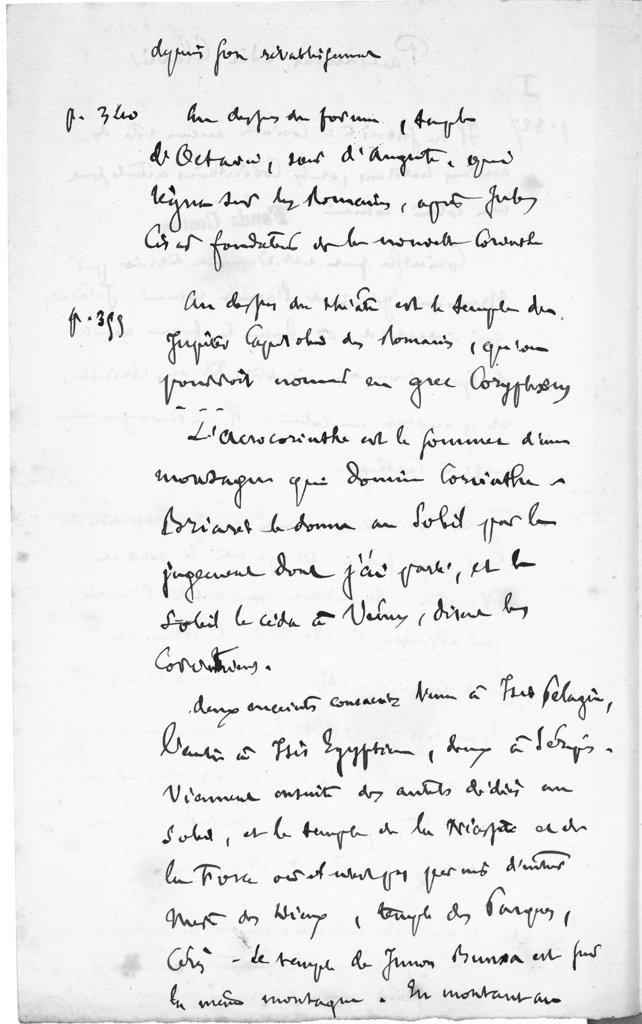 depuis son rétablissement
p. 340 Au dessus du forum, temple
d'Octavie, sœur d'Auguste, qui
régna sur les Romains, après Jules
César fondateur de la nouvelle Corinthe
p. 399 Au dessus du théâtre est le temple de
Jupiter Capitolin des Romains, qu'on
pourroit nommer en grec Coryphaeus
L'Acrocorinthe est le sommet d'une
montagne qui domine Corinthe
Briarée le donna au Soleil par le
jugement dont j'ai parlé, et le
Soleil le céda à Vénus, disent les
Corinthiens.
deux enceints consacrés l'une à Isis Pelagia,
l'autre à Isis Egyptienne, deux à Sérapis.
Viennent ensuite des autels dédiés au
Soleil, et le temple de la Nécessité et de
la Force où il n'est pas permis d'entrer
Mère des Dieux, temple des Parques,
Cérès - Le temple de Junon Bunaea est sur
la même montagne. En montant au